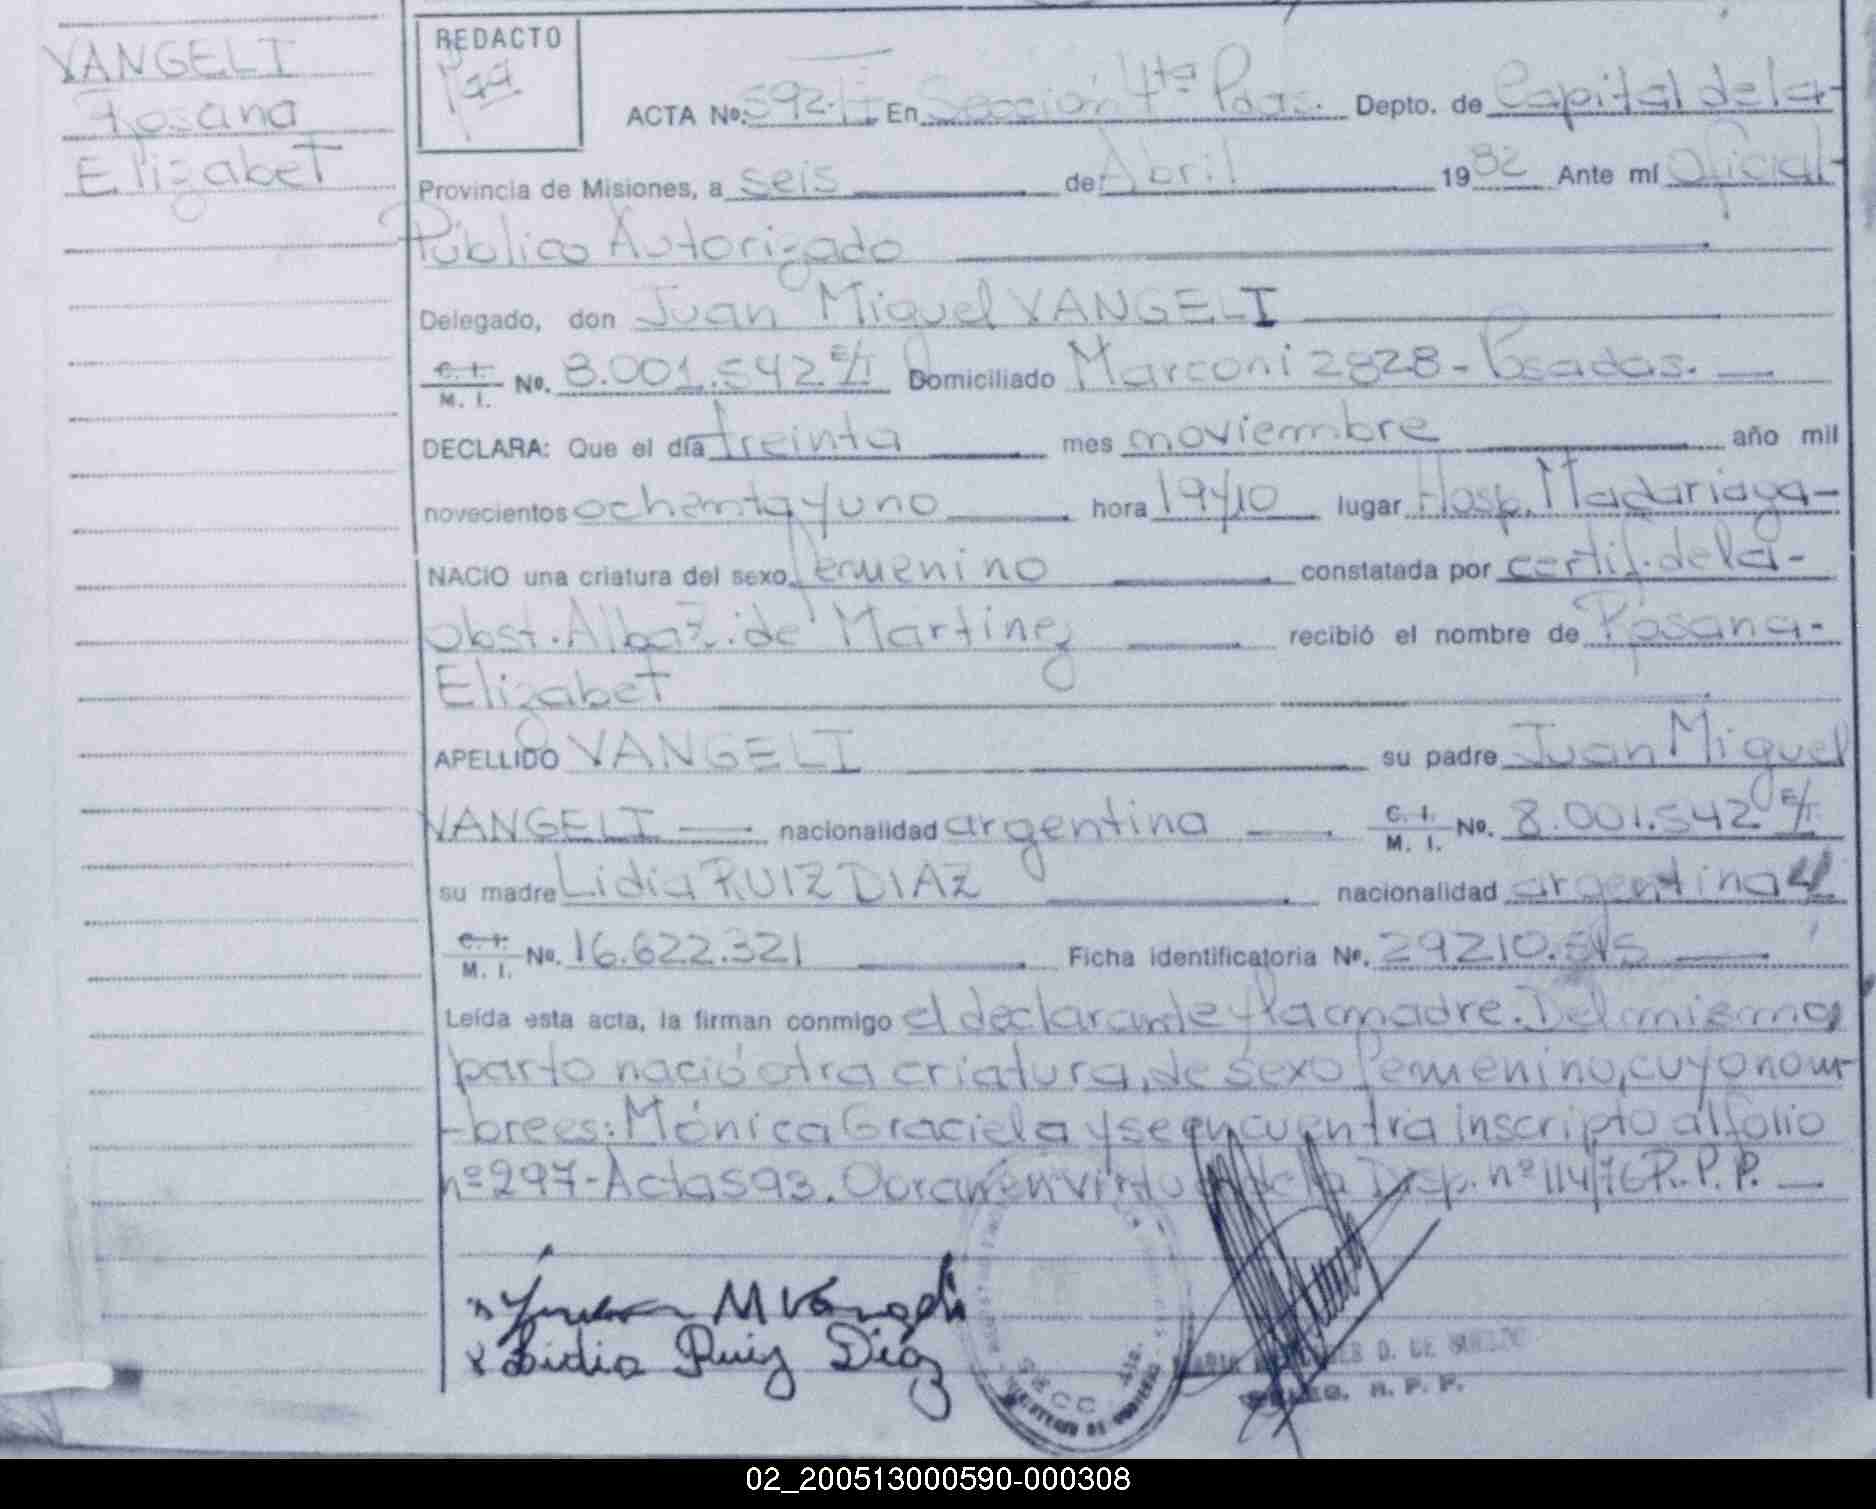 VANGELI
Rosana
Elizabet
REDACTO
ACTA Nº. 592-TI En Sección 4ta Pdas. Depto. de Capital de la-
Provincia de Misiones, a seis de Abril 1982 Ante mí Oficial-
Público Autorizado
Delegado, don Juan Miguel VANGELI
C. I. M. I. Nº. 8.001.542 E/T Domiciliado Marconi 2828 - Posadas.
DECLARA: Que el día treinta mes noviembre año mil
novecientos ochenta y uno hora 19y10 lugar Hosp. Madariaga-
NACIO una criatura del sexo femenino constatada por certif. de la-
obst. Alba Z. de Martinez recibió el nombre de Rosana-
Elizabet
APELLIDO VANGELI su padre Juan Miguel
VANGELI nacionalidad argentina C. I. M. I. Nº. 8.001.542 E/T
su madre Lidia RUIZ DIAZ nacionalidad argentina
C. I. M. I. Nº. 16.622.321 Ficha identificatoria Nº. 29210.515
Leída esta acta, la firman conmigo el declarante y la madre. Del mismo
parto nació otra criatura, de sexo femenino, cuyo nom-
-bre es: Mónica Graciela y se encuentra inscripto al folio
nº 297-Acta 593. Obran en virtud de la Disp. nº 114/76 R.P.P.
Juan M Vangeli
Lidia Ruiz Diaz
SECC 4ta.
D. DE
R. P. P.
02_200513000590-000308